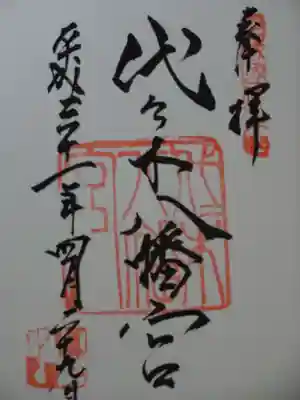 奉拝
代々木八幡宮
平成三十一年四月二十九日